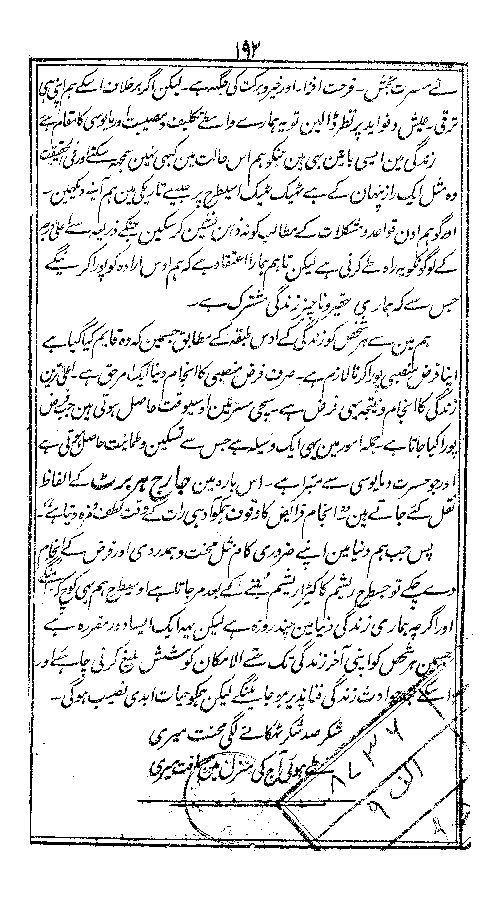 ۱۹۲
لئے مسرت بخش - فرحت افزا - اور خیر و برکت کی جگہ ہے - لیکن اگر برخلاف اسکے ہم اپنی ہی
ترقی - عیش و فواید پر نظر ڈالین تو یہ ہمارے واسطے تکلیف و مصیبت اور مایوسی کا مقام ہے
زندگی مین ایسی باتین بہی ہین جنکو ہم اس حالت مین کبہی نہین سمجہہ سکتے اور فی الحقیقت
وہ مثل ایک راز پنہان کے ہے ٹہیک ٹہیک اسیطرح پر جیسے تاریکی مین ہم آئینہ دیکہین -
اور گو ہم اون قواعد و مشکلات کے مطالب کو نہ ذہن نشین کر سکین جنکے ذریعہ سے اعلیٰ درجہ
کے لوگونکو یہ راہ طے کرنی ہے لیکن تاہم ہمارا اعتقاد ہے کہ ہم اوس ارادہ کو پورا کرینگے
جس سے کہ ہماری حقیر و ناچیز زندگی مشترک ہے -
ہم مین سے ہر شخص کو زندگی کے اوس طبقہ کے مطابق جسمین کہ وہ قایم کیا گیا ہے
اپنا فرض منصبی پورا کرنا لازم ہے - صرف فرض منصبی کا انجام دینا ایک امر حق ہے - اعلیٰ ترین
زندگی کا انجام و نتیجہ یہی فرض ہے - سچی مسرتین اوسیوقت حاصل ہوتی ہین جب فرض
پورا کیا جاتا ہے - جملہ امور مین یہی ایک وسیلہ ہے جس سے تسکین و طمانیت حاصل ہوتی ہے
اور جو حسرت و مایوسی سے مبرا ہے - اس بارہ مین جارج ہربرٹ کے الفاظ
نقل کئے جاتے ہین انجام فرائض کا وقوف ہمکو آدہی رات کے وقت لطف و مزہ دیتا ہے -
پس جب ہم دنیا مین اپنے ضروری کام مثل محبت و ہمدردی اور فرض کے انجام
دے چکے تو جسطرح ریشم کا کیڑا ریشم بننے کے بعد مر جاتا ہے اوسیطرح ہم بہی کوچ کرینگے
اور اگرچہ ہماری زندگی دنیا مین چند روزہ ہے لیکن یہہ ایک ایسا دور مقررہ ہے
جسمین ہر شخص کو اپنی آخر زندگی تک حتے الامکان کوشش بلیغ کرنی چاہئے اور
اسکے حوادث زندگی فنا پذیر ہو جاینگے لیکن ہمکو حیات ابدی نصیب ہوگی -
شکر صد شکر ٹھکانے لگی محنت میری
طے ہوئی آج کی منزل مین مسافت میری